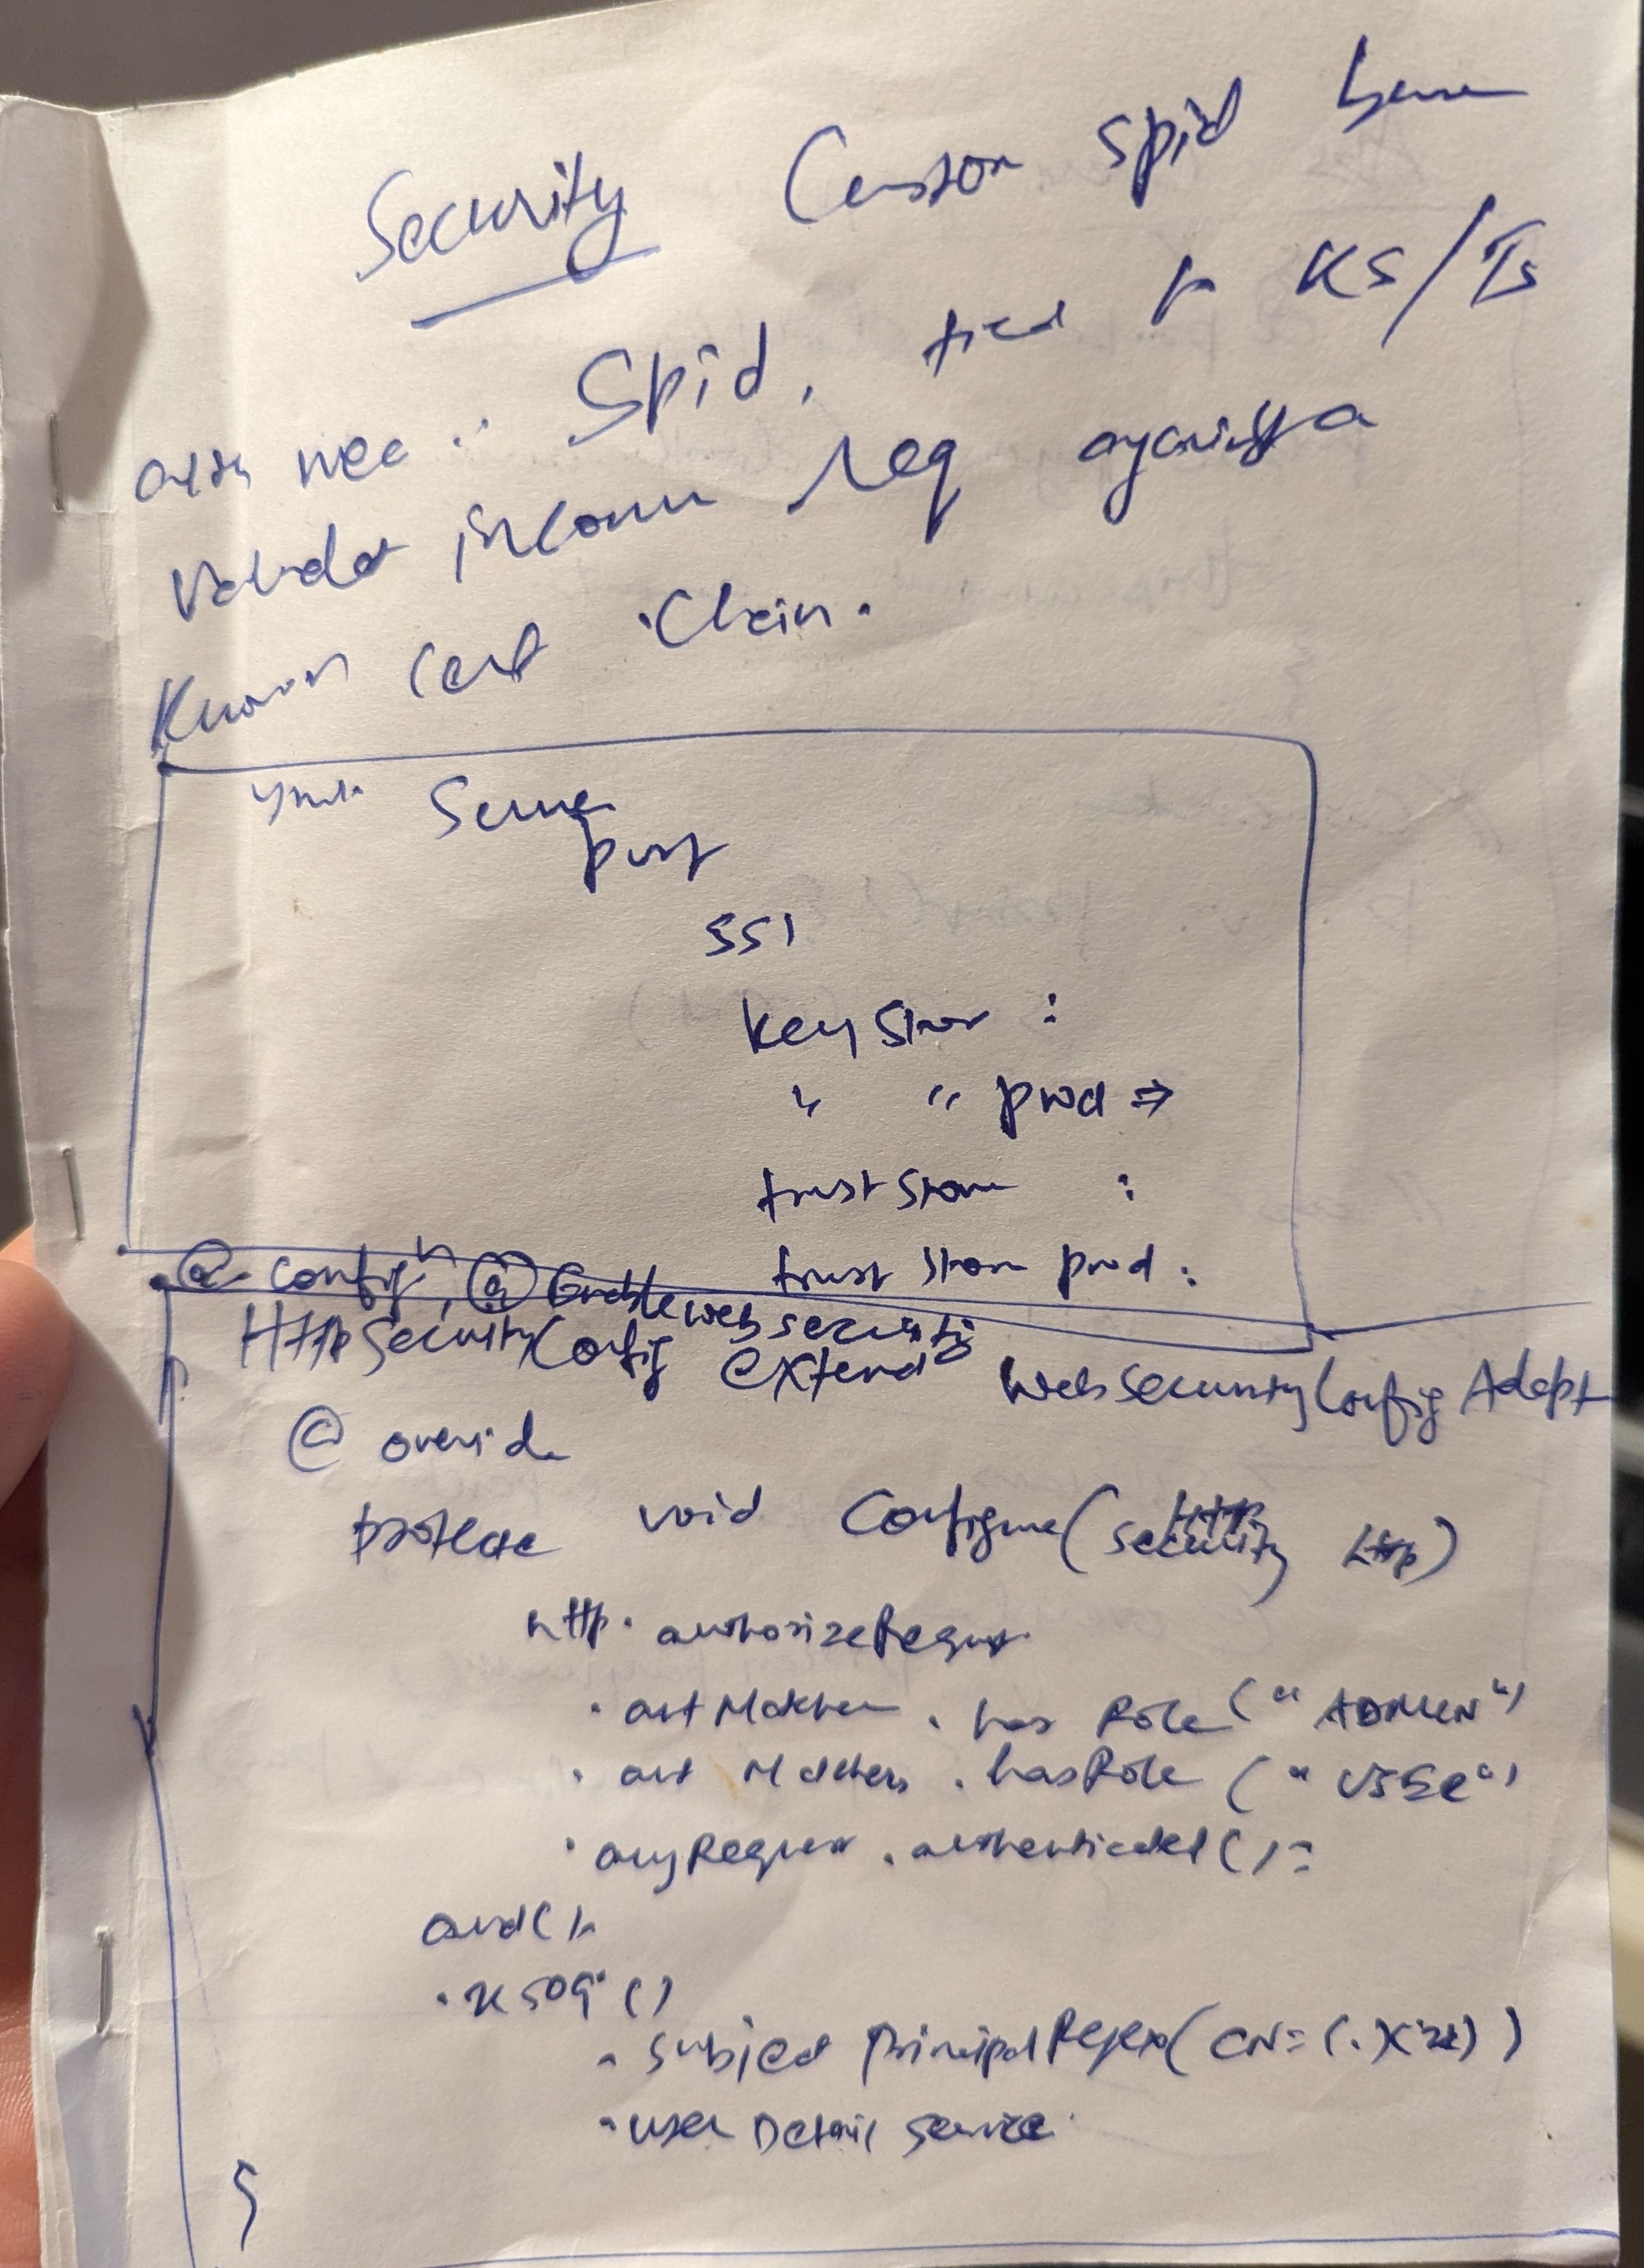 Security Custom Spid
Spid, tied to KS/Ts
Validat incomn req against a
Known cert Chain.
yml Server
port
SSl
Key Stor :
" " pwd ⇒
trust Store :
trust store pwd :
@ config, @ Enablewebsecurity
HttpSecurityConfig extend WebSecurityConfigAdapt
@ overid
protecte void Configure(Http Security http)
http. authorizeReques
. antMatcher . has Role ("ADMIN")
. ant Matchers . hasRole ("USER")
. anyRequest . authenticated()
and().
. X509 ()
. Subject PrincipalRegex(CN=(.)
. user Detail Service
}